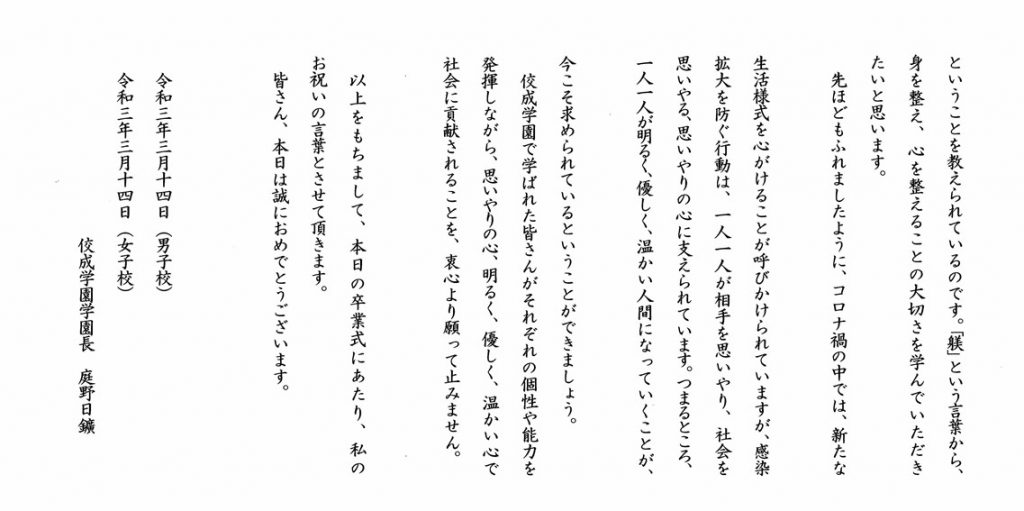 ということを教えられているのです。「躾」という言葉から、
身を整え、心を整えることの大切さを学んでいただき
たいと思います。
先ほどもふれましたように、コロナ禍の中では、新たな
生活様式を心がけることが呼びかけられていますが、感染
拡大を防ぐ行動は、一人一人が相手を思いやり、社会を
思いやる、思いやりの心に支えられています。つまるところ、
一人一人が明るく、優しく、温かい人間になっていくことが、
今こそ求められているということができましょう。
佼成学園で学ばれた皆さんがそれぞれの個性や能力を
発揮しながら、思いやりの心、明るく、優しく、温かい心で
社会に貢献されることを、衷心より願って止みません。
以上をもちまして、本日の卒業式にあたり、私の
お祝いの言葉とさせて頂きます。
皆さん、本日は誠におめでとうございます。
令和三年三月十四日（男子校）
令和三年三月十四日（女子校）
佼成学園学園長　庭野日鑛